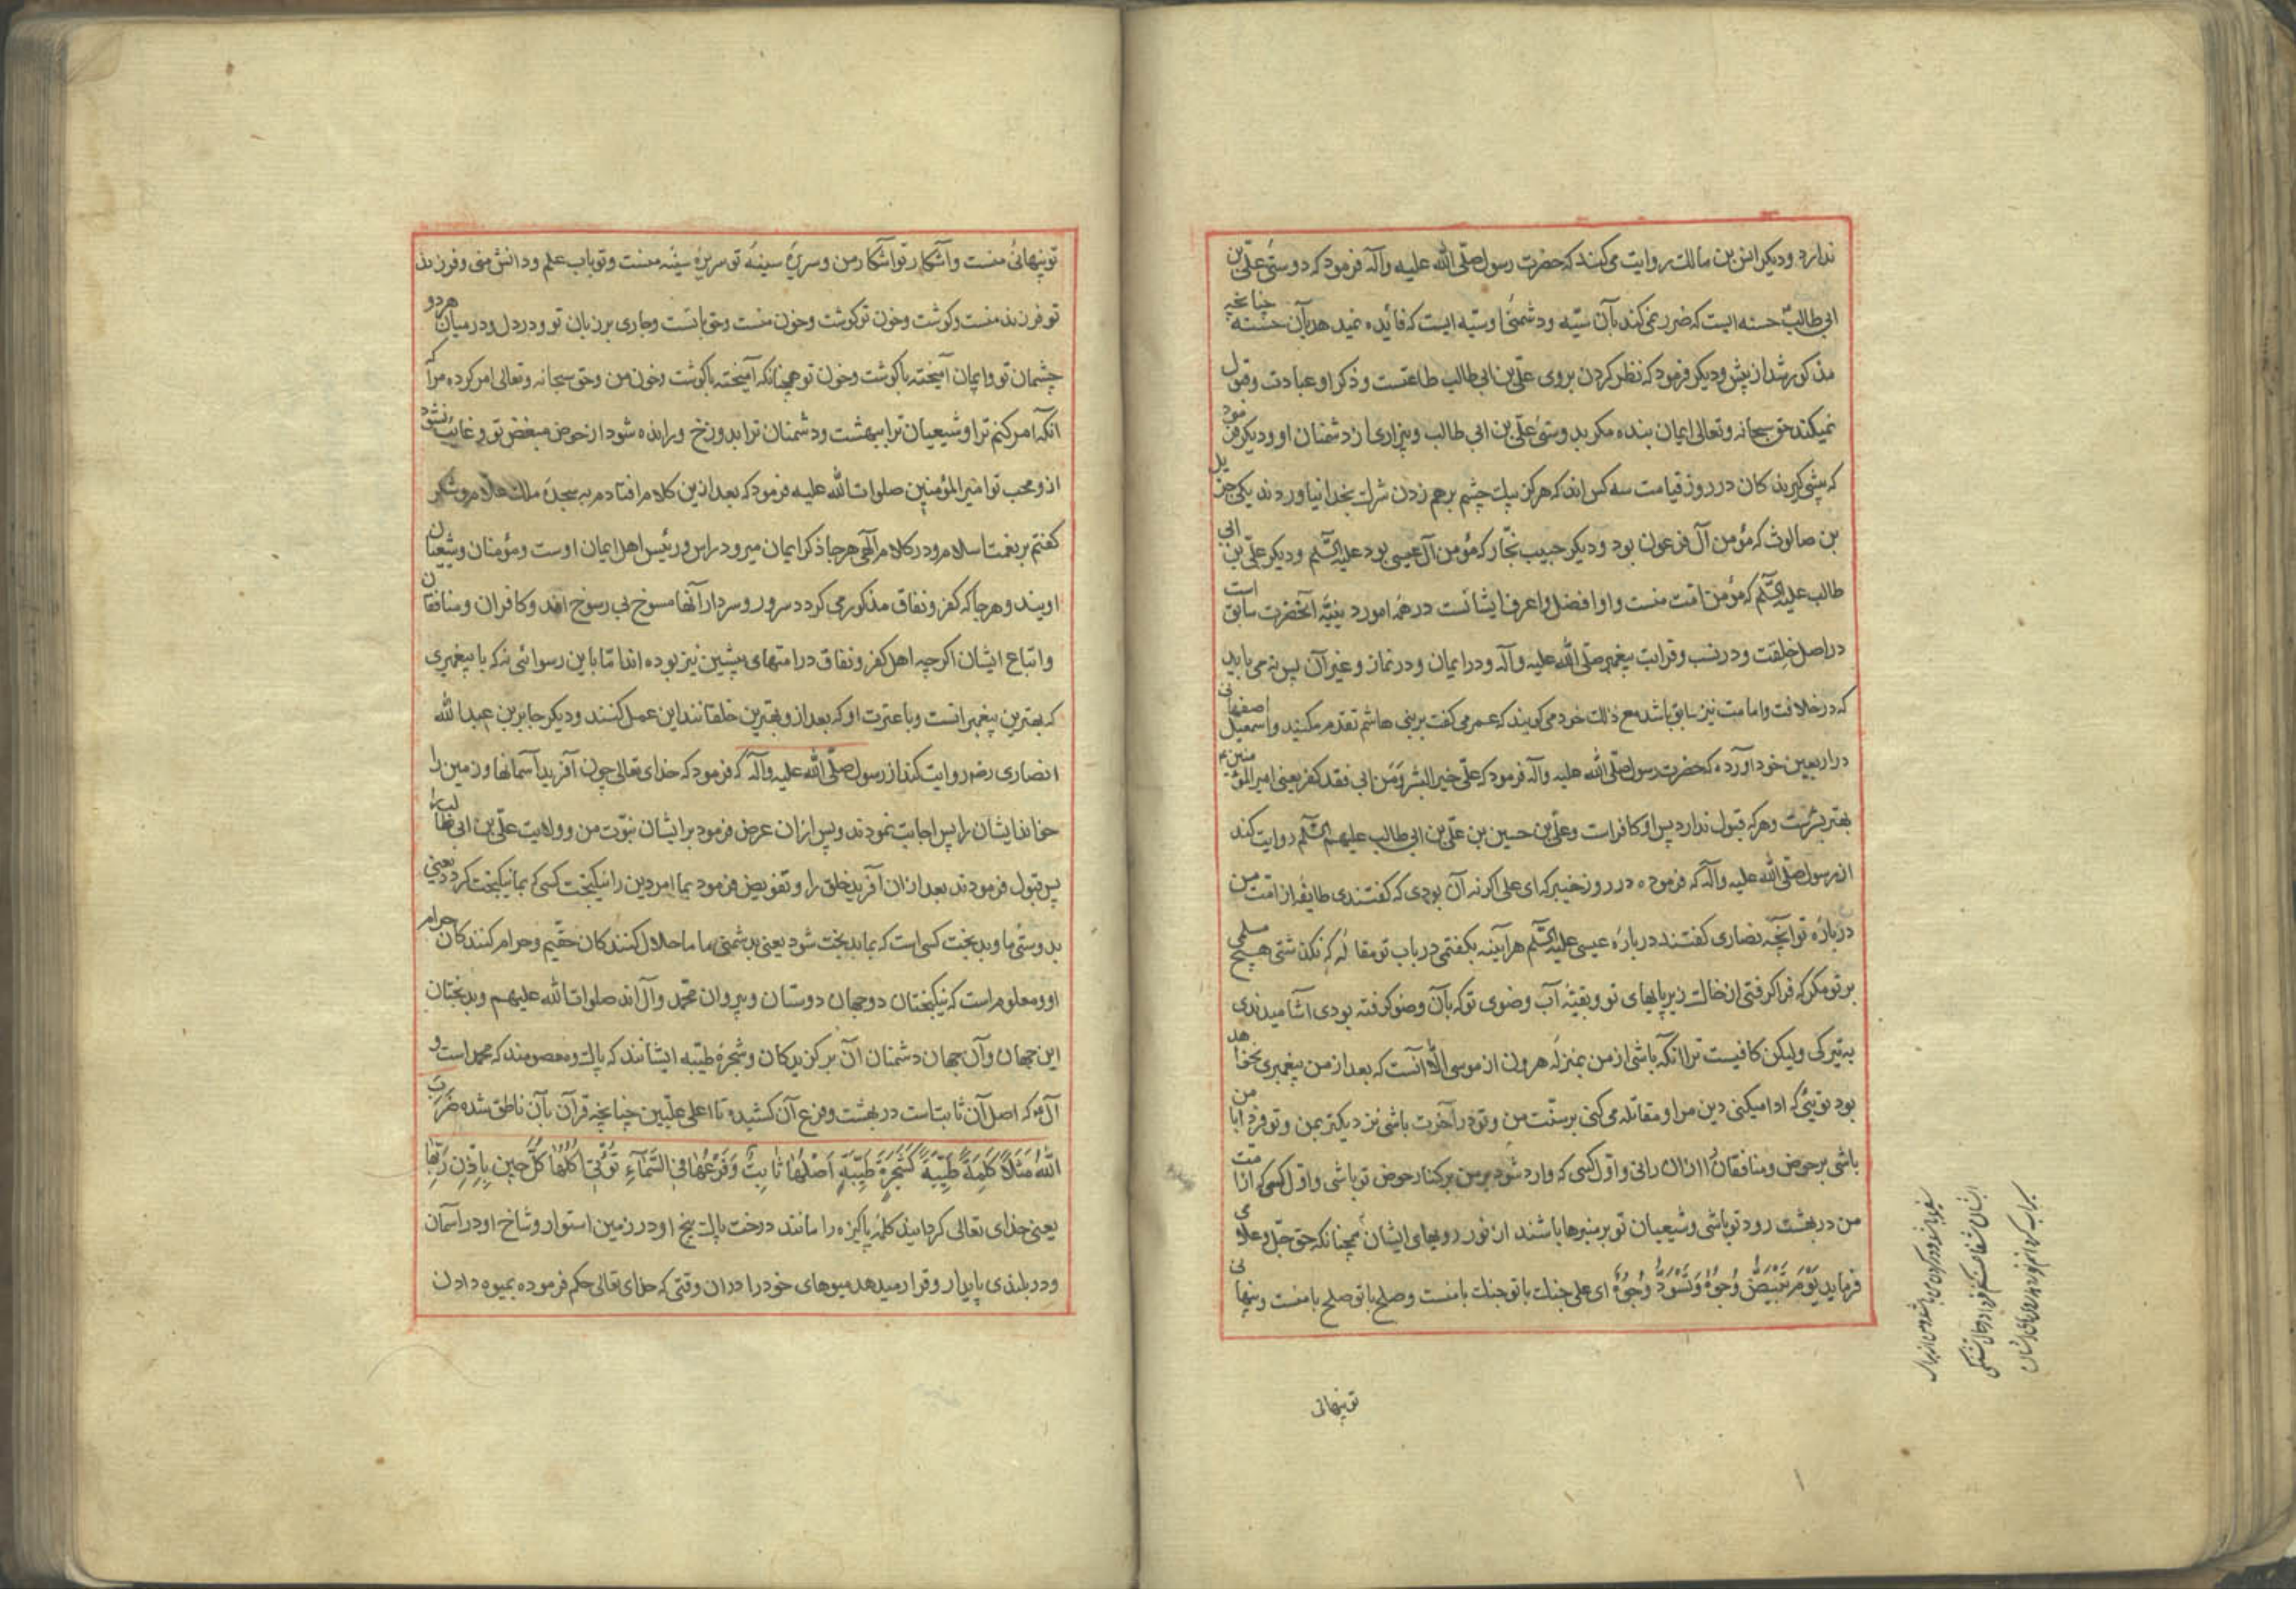 ندارد و دیکر انس بن مالك روایت می‌کند که حضرت رسول صلّی الله علیه وآله فرمود که دوستی علّی بن
ابی طالب حسنه ایست که ضرر نمی‌کند بآن سیّه و دشمنی او سیّه ایست که فائده نمیدهد بآن حسنه چنانچه
مذکور شد از پیش و دیکر فرمود که نظر کردن بروی علّی بن ابی طالب طاعتست و ذکر او عبادت و قبول
نمیکند حق سبحانه وتعالی ایمان بنده مکر بدوستی علّی بن ابی طالب و بیزاری از دشمنان او و دیکر فرمود
که پیشی کیرندکان در روز قیامت سه کس اند که هرکز بیك چشم برهم زدن شرك بخدا نیاوردند یکی حزیل
بن صالوث که مؤمن آل فرعون بود و دیکر حبیب نجّار که مؤمن آل عیسی بود علیه السّلم و دیکر علّی بن ابی
طالب علیه السّلم که مؤمن امّت منست و او افضل و اعرف ایشانست در همه امور دینیّه آنحضرت سابق است
در اصل خلقت و در نسب و قرابت پیغمبر صلّی الله علیه وآله و در ایمان و در نماز و غیر آن پس نه می باید
که در خلافت و امامت نیز سابق باشد مع ذلك خود می کویند که عمر می کفت بر بنی هاشم تقدم مکنید و اسمعیل اصفهانی
در اربعین خود آورده که حضرت رسول صلّی الله علیه وآله فرمود که علّی خیر البشر ومن ابی فقد کفر یعنی امیر المؤمنین
بهتر بشرست و هر که قبول ندارد پس او کافر است و علّی بن حسین بن علّی بن ابی طالب علیهم السّلم روایت کند
از رسول صلّی الله علیه وآله که فرموده در روز خیبر که ای علی اکر نه آن بودی که کفتندی طایفه از امّت من
درباره تو آنچه نصاری کفتند درباره عیسی علیه السّلم هر آینه بکفتمی در باب تو مقاله که نکذشتی هیچ مسلمی
بر تو مکر که فرا کرفتی از خاك زیر پایهای تو و بقیّه آب وضوی تو که بآن وضو کرفته بودی آشامیدندی
به تبرکی ولیکن کافیست ترا آنکه باشی از من بمنزله هرون از موسی الّا آنست که بعد از من پیغمبری نخواهد
بود تویئی که ادا میکنی دین مرا و مقاتله می کنی بر سنّت من و تو در آخرت باشی نزدیکتر بمن و تو فردا با من
باشی بر حوض و منافقان را از آن رانی و اوّل کسی که وارد شود بر من بر کنار حوض تو باشی و اوّل کسی که از امّت
من در بهشت رود تو باشی و شیعیان تو بر منبرها باشند از نور رویهای ایشان همچنانکه حق جلّ وعلا می
فرماید یَوْمَ تَبْیَضُّ وُجُوهٌ وَتَسْوَدُّ وُجُوهٌ ای علی جنك با تو جنك با منست و صلح با تو صلح با منست و پنهانی
تو پنهانی
تو پنهانی منست و آشکار تو آشکار من و سریره سینه تو سریره سینه منست و تو باب علم و دانش منی و فرزند
تو فرزند منست و کوشت و خون تو کوشت و خون منست و حق با تست و جاری بر زبان تو و در دل و در میان هر دو
چشمان تو و ایمان آمیخته باکوشت و خون تو همچنانکه آمیخته باکوشت و خون من و حق سبحانه وتعالی امر کرده مرا که
آنکه امر کنم ترا و شیعیان ترا ببهشت و دشمنان ترا بدوزخ و رانده شود از حوض مبغض تو و غائب نشود
ازو محب تو امیر المؤمنین صلوات الله علیه فرمود که بعد ازین کلام افتادم به سجده ملك علام و شکر
کفتم بر نعمت اسلام و در کلام الهی هرجا ذکر ایمان میرود راس و رئیس اهل ایمان اوست و مؤمنان و شیعیان
اویند و هرجا که کفر و نفاق مذکور می کردد سرور و سردار آنها مسوخ بی رسوخ اند و کافران و منافقان
و اتباع ایشان اکرچه اهل کفر و نفاق در امتهای پیشین نیز بوده اند امّا باین رسوائی نه که با پیغمبری
که بهترین پیغمبرانست و با عترت او که بعد ازو بهترین خلقانند این عمل کنند و دیکر جابر بن عبدالله
انصاری رضه روایت کند از رسول صلّی الله علیه وآله که فرمود که خدای تعالی چون آفرید آسمانها و زمین را
خواند ایشان را پس اجابت نمودند و پس از آن عرض فرمود بر ایشان نبوّت من و ولایت علّی بن ابی طالب را
پس قبول فرمودند بعد از آن آفرید خلق را و تفویض فرمود بما امر دین را نیکبخت کسی که بما نیکبخت کردد یعنی
بدوستی ما و بدبخت کسی است که بما بدبخت شود یعنی بدشمنی ما ما حلال کنندکان حقّیم و حرام کنندکان حرام
او و معلوم است که نیکبختان دوجهان دوستان و پیروان محمّد و آل اند صلوات الله علیهم و بدبختان
این جهان و آن جهان دشمنان آن برکزیدکان و شجره طیّبه ایشانند که پاك و معصومند که محمد است و
آل او که اصل آن ثابتست در بهشت و فرع آن کشیده تا اعلی علّیین چنانچه قرآن بآن ناطق شده ضَرَبَ
اللّٰهُ مَثَلًا کَلِمَةً طَیِّبَةً کَشَجَرَةٍ طَیِّبَةٍ اَصْلُهَا ثَابِتٌ وَفَرْعُهَا فِی السَّمَآءِ تُؤْتِی اُکُلَهَا کُلَّ حِینٍ بِاِذْنِ رَبِّهَا
یعنی خدای تعالی کردانید کلمه پاکیزه را مانند درخت پاك بیخ او در زمین استوار و شاخ او در آسمان
و در بلندی پایدار و قرار میدهد میوهای خود را در آن وقتی که خدای تعالی حکم فرموده بمیوه دادن